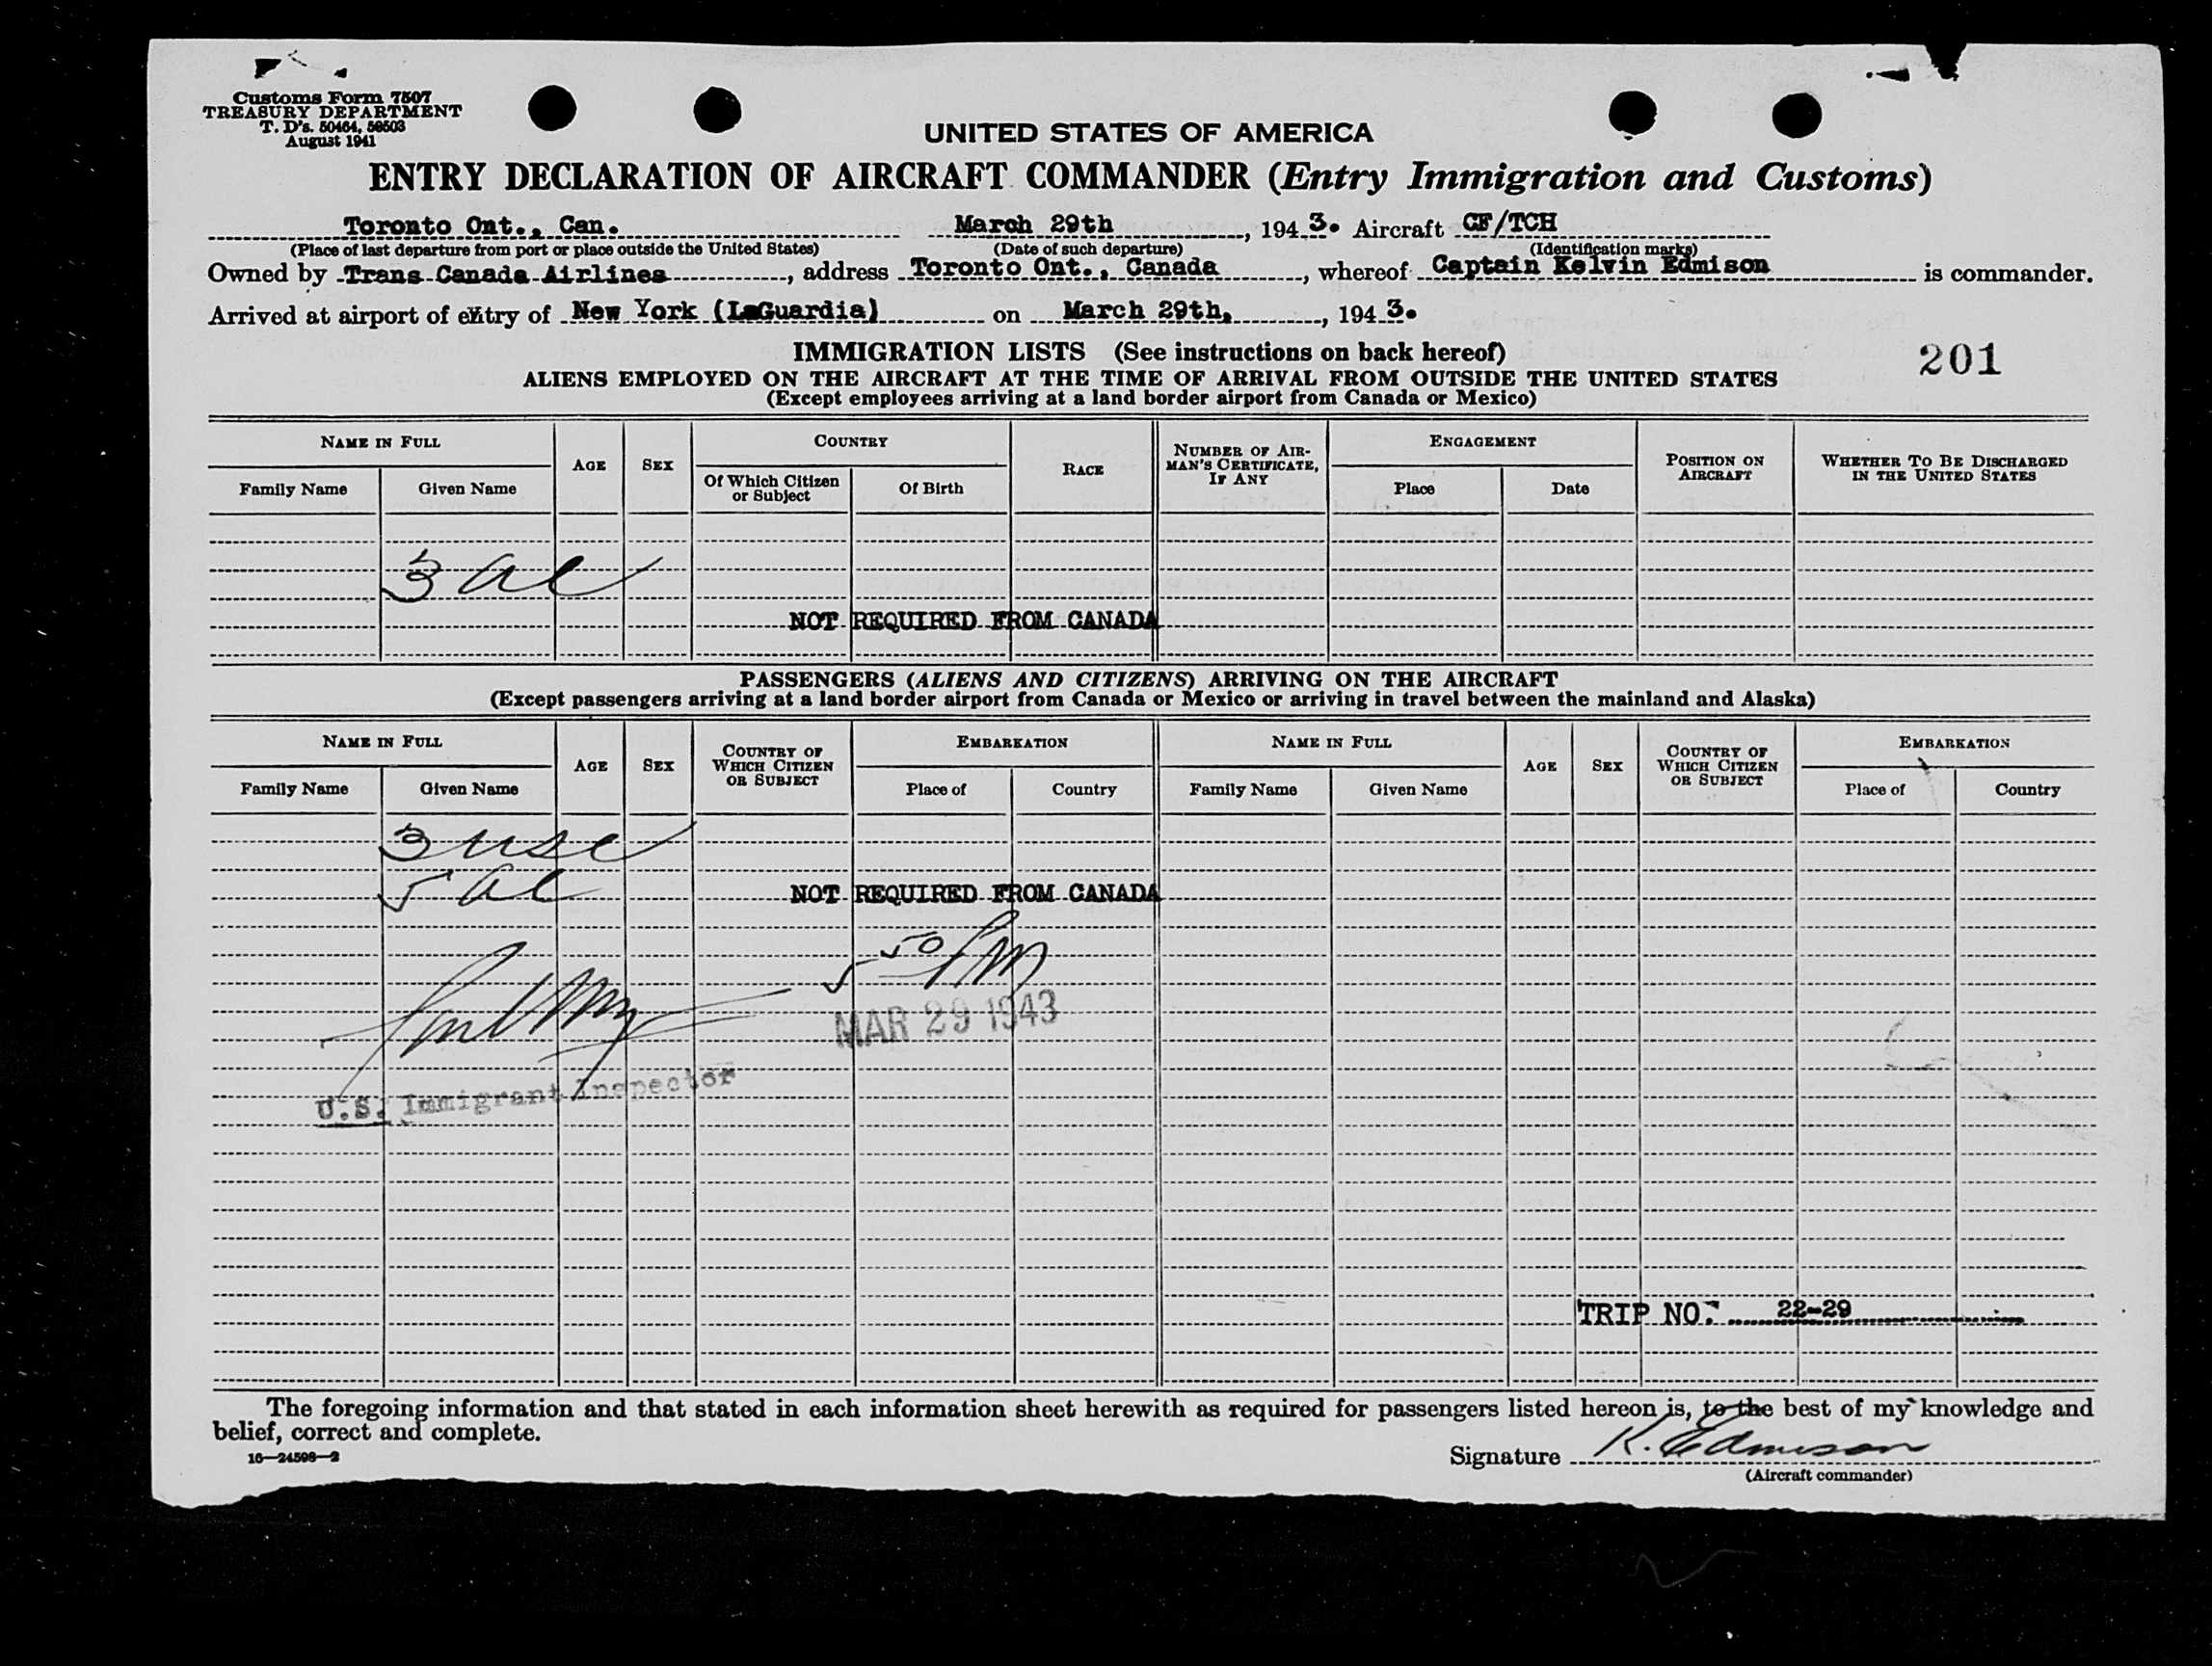 Customs Form 7507
TREASURY DEPARTMENT
T. D's. 50464, 50503
August 1941
UNITED STATES OF AMERICA
ENTRY DECLARATION OF AIRCRAFT COMMANDER (Entry Immigration and Customs)
Toronto Ont., Can. March 29th, 1943. Aircraft CF/TCH
(Place of last departure from port or place outside the United States) (Date of such departure) (Identification marks)
Owned by Trans Canada Airlines, address Toronto Ont., Canada, whereof Captain Kelvin Edmison is commander.
Arrived at airport of entry of New York (LaGuardia) on March 29th, 1943.
IMMIGRATION LISTS (See instructions on back hereof)
201
ALIENS EMPLOYED ON THE AIRCRAFT AT THE TIME OF ARRIVAL FROM OUTSIDE THE UNITED STATES
(Except employees arriving at a land border airport from Canada or Mexico)
NAME IN FULL AGE SEX COUNTRY RACE NUMBER OF AIRMAN'S CERTIFICATE, IF ANY ENGAGEMENT POSITION ON AIRCRAFT WHETHER TO BE DISCHARGED IN THE UNITED STATES
Family Name Given Name Of Which Citizen or Subject Of Birth Place Date
3 al
NOT REQUIRED FROM CANADA
PASSENGERS (ALIENS AND CITIZENS) ARRIVING ON THE AIRCRAFT
(Except passengers arriving at a land border airport from Canada or Mexico or arriving in travel between the mainland and Alaska)
NAME IN FULL AGE SEX COUNTRY OF WHICH CITIZEN OR SUBJECT EMBARKATION NAME IN FULL AGE SEX COUNTRY OF WHICH CITIZEN OR SUBJECT EMBARKATION
Family Name Given Name Place of Country Family Name Given Name Place of Country
3 usc
5 al NOT REQUIRED FROM CANADA
5 50 PM
MAR 29 1943
U.S. Immigrant Inspector
TRIP NO. 22-29
The foregoing information and that stated in each information sheet herewith as required for passengers listed hereon is, to the best of my knowledge and
belief, correct and complete.
16—24598-2
Signature K. Edmison
(Aircraft commander)